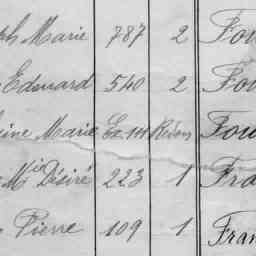 ph Marie 787 2 Fou
Edouard 540 2 Fou
ine Marie Ex. m Reden Fou
Mie Désiré 223 1 Fra
Pierre 109 1 Fran